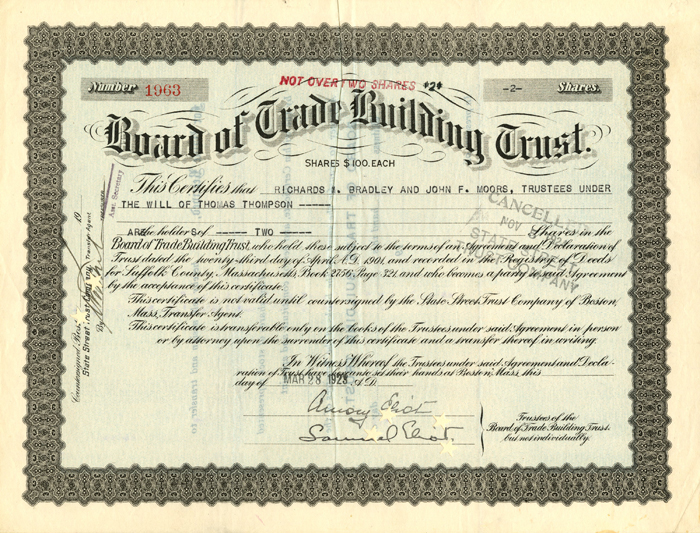 Number 1963
NOT OVER TWO SHARES $2$
-2- Shares.
Board of Trade Building Trust.
SHARES $100. EACH
This Certifies that RICHARDS M. BRADLEY AND JOHN F. MOORS, TRUSTEES UNDER
THE WILL OF THOMAS THOMPSON -----
ARE the holders of ----- TWO ----- Shares in the
Board of Trade Building Trust, who hold these subject to the terms of an Agreement and Declaration of
Trust dated the twenty-third day of April A.D. 1901, and recorded in the Registry of Deeds
for Suffolk County, Massachusetts Book 2756, Page 321, and who becomes a party to said Agreement
by the acceptance of this certificate.
This certificate is not valid until countersigned by the State Street Trust Company of Boston,
Mass., Transfer Agent.
This certificate is transferable only on the books of the Trustees under said Agreement in person
or by attorney upon the surrender of this certificate and a transfer thereof in writing.
In Witness Whereof the Trustees under said Agreement and Decla-
ration of Trust have hereunto set their hands in Boston, Mass. this
day of MAR 28 1923 A.D.
Amory Eliot
Samuel Eliot.
Trustees of the
Board of Trade Building Trust
but not individually.
CANCELLED
NOV
STATE STREET
TRUST COMPANY
Countersigned, Boston, 19
State Street Trust Company, Transfer Agent
By
Asst. Secretary